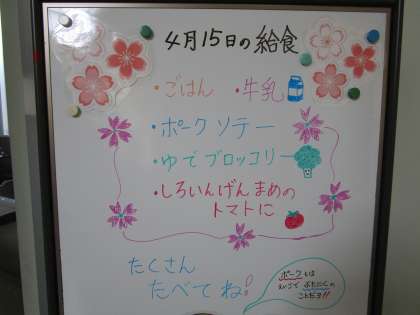 4月15日の給食
・ごはん ・牛乳
・ポーク ソテー
・ゆで ブロッコリー
・しろいんげん まめの
トマトに
たくさん
たべて ね!
ポーク とは
えいごで ぶたにくの
ことだよ!!